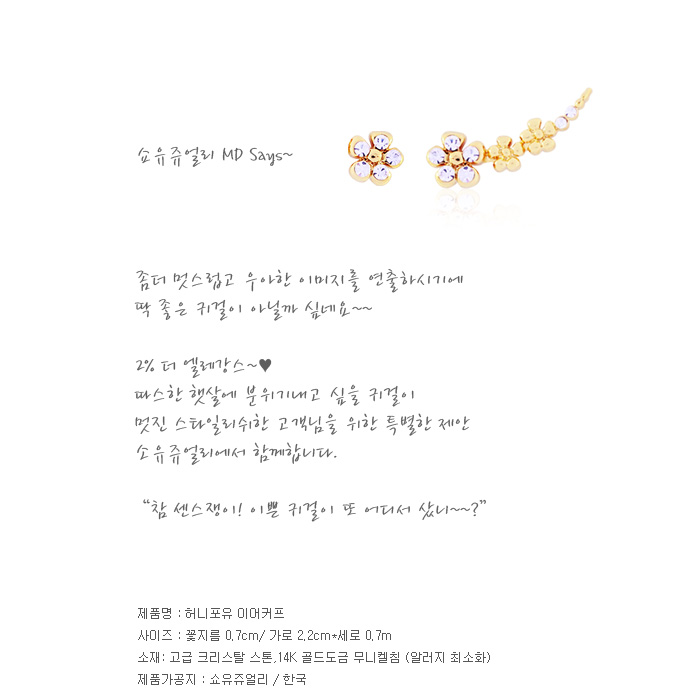 소유쥬얼리 MD Says~
좀더 멋스럽고 우아한 이미지를 연출하시기에
딱 좋은 귀걸이 아닐까 싶네요~~
2% 더 엘레강스~♥
따스한 햇살에 분위기내고 싶을 귀걸이
멋진 스타일리쉬한 고객님을 위한 특별한 제안
소유쥬얼리에서 함께합니다.
“참 센스쟁이! 이쁜 귀걸이 또 어디서 샀니~~?”
제품명 : 허니포유 이어커프
사이즈 : 꽃지름 0,7cm/ 가로 2,2cm*세로 0,7m
소재: 고급 크리스탈 스톤,14K 골드도금 무니켈침 (알러지 최소화)
제품가공지 : 쇼유쥬얼리 / 한국